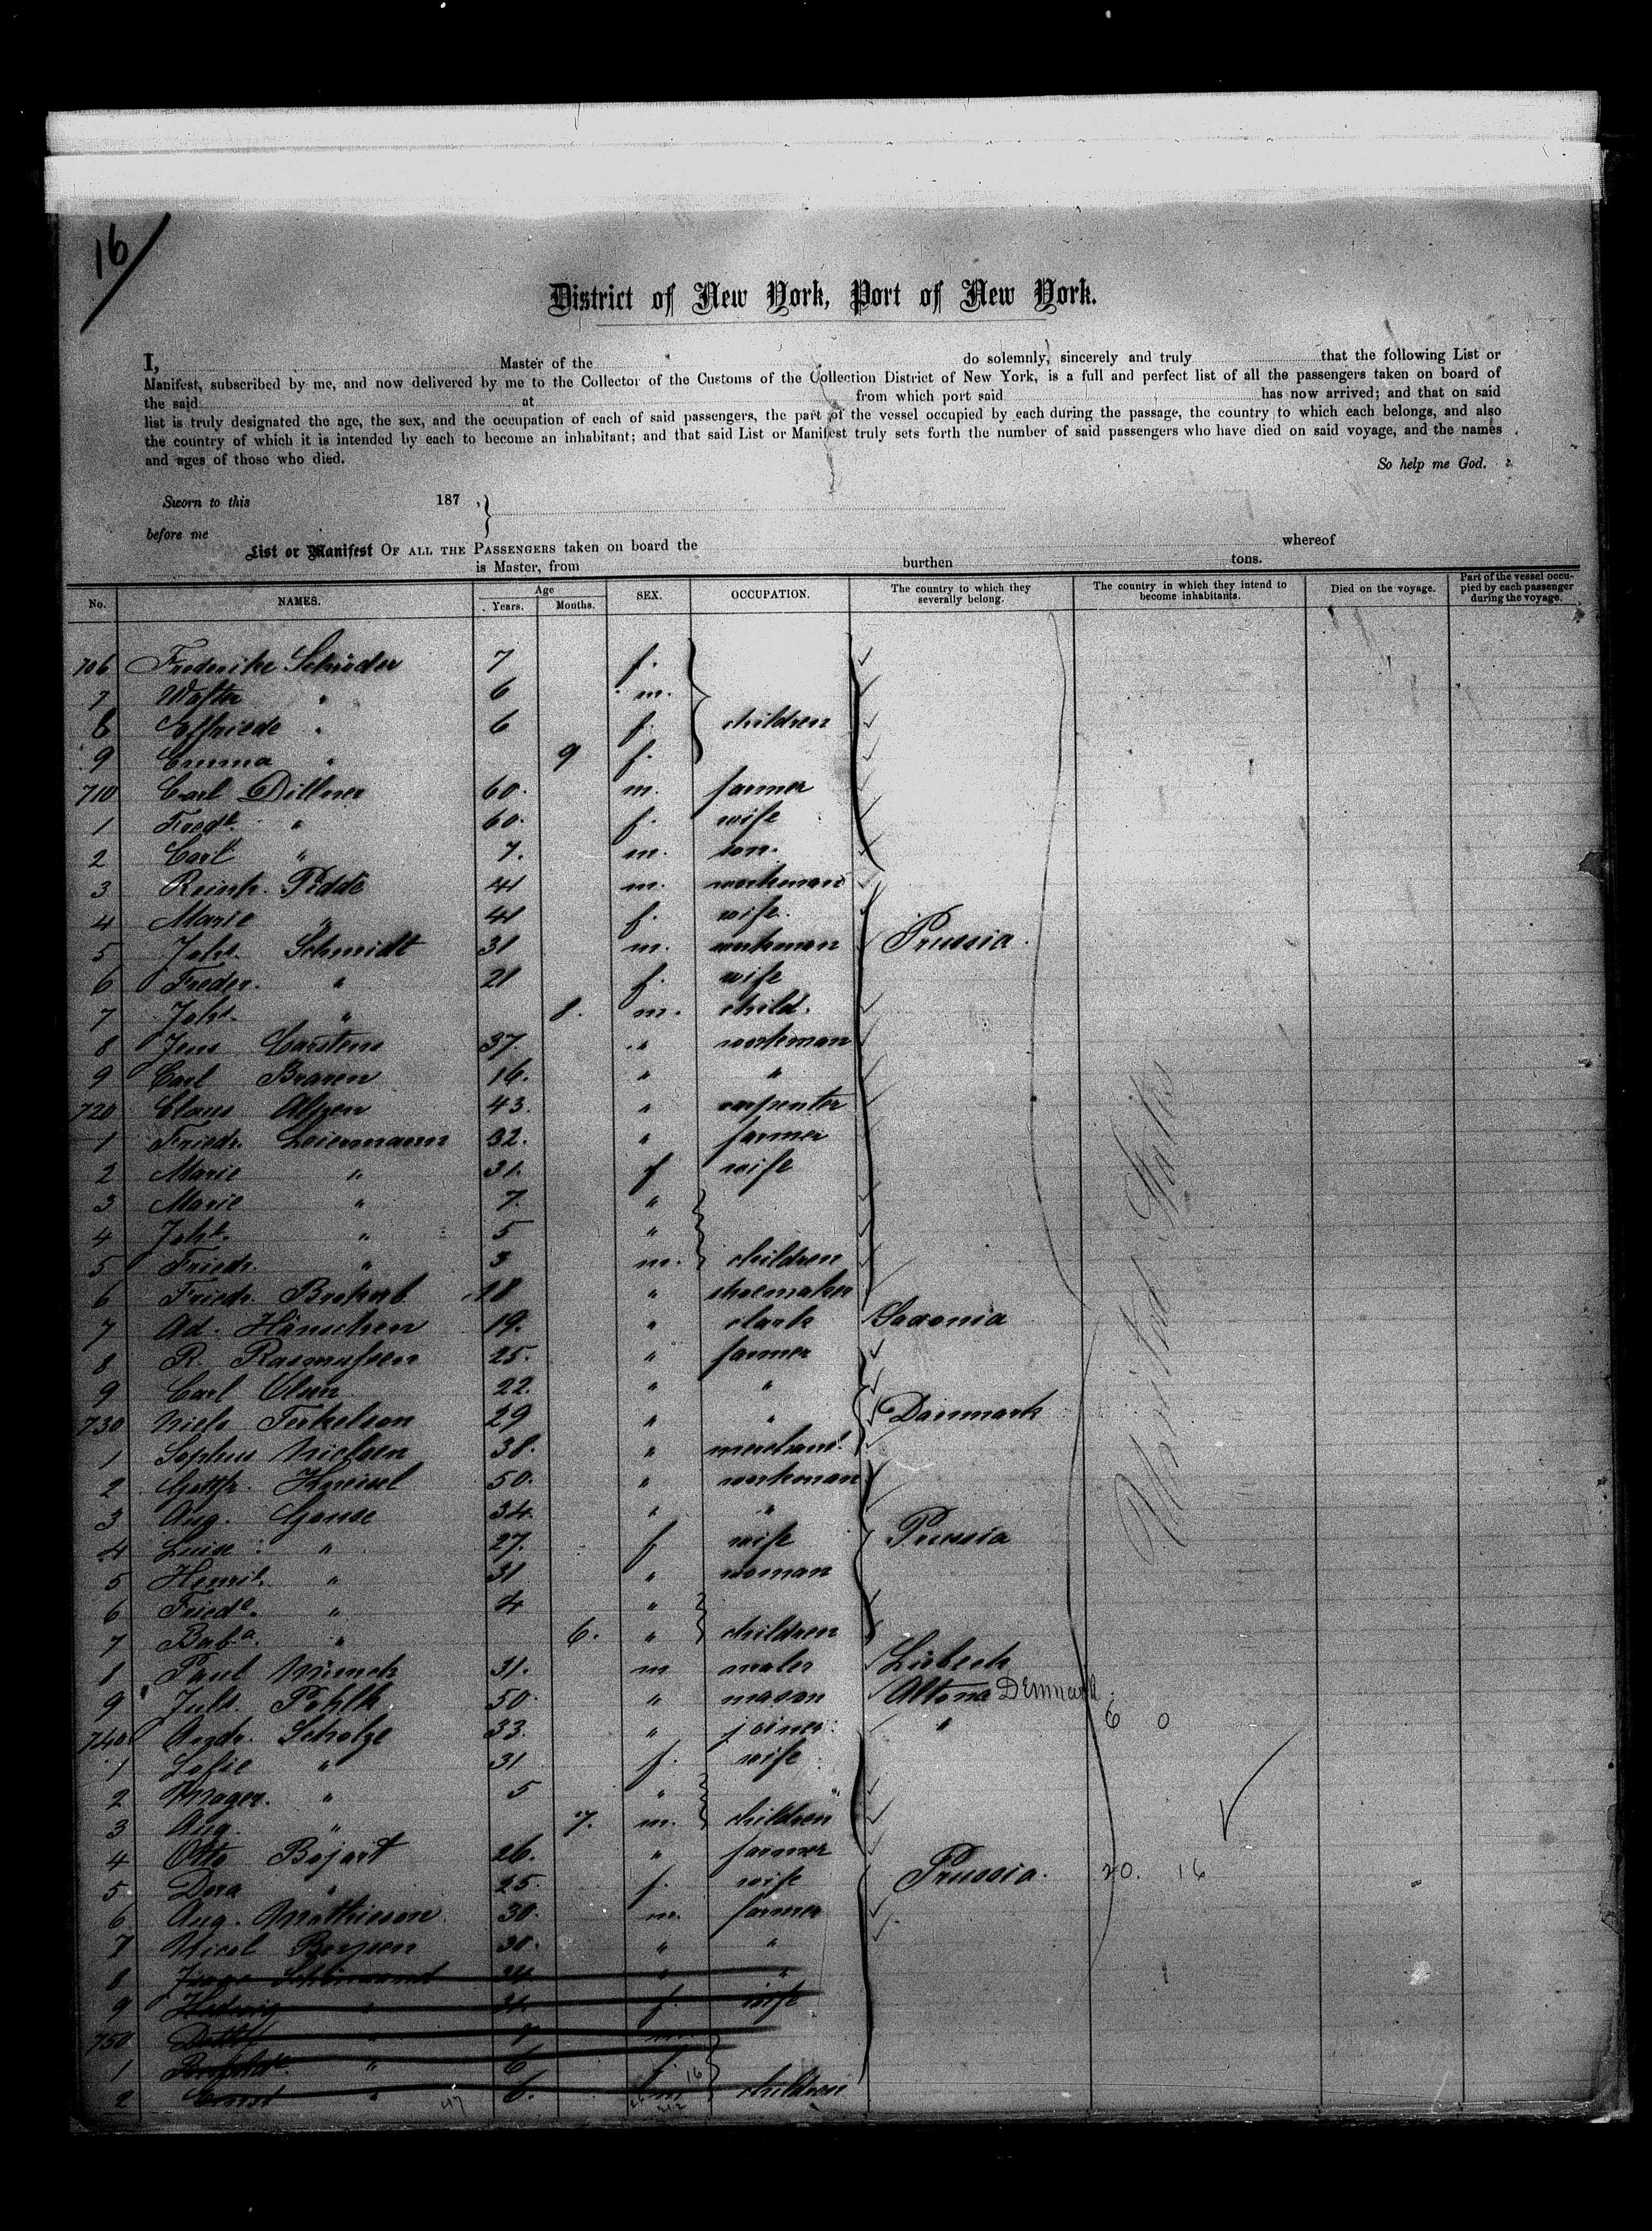 16/
District of New York, Port of New York.
I, Master of the do solemnly, sincerely and truly that the following List or
Manifest, subscribed by me, and now delivered by me to the Collector of the Customs of the Collection District of New York, is a full and perfect list of all the passengers taken on board of
the said at from which port said has now arrived; and that on said
list is truly designated the age, the sex, and the occupation of each of said passengers, the part of the vessel occupied by each during the passage, the country to which each belongs, and also
the country of which it is intended by each to become an inhabitant; and that said List or Manifest truly sets forth the number of said passengers who have died on said voyage, and the names
and ages of those who died. So help me God.
Sworn to this 187 , }
before me
List or Manifest OF ALL THE PASSENGERS taken on board the whereof
is Master, from burthen tons.
No. NAMES. Age Years. Months. SEX. OCCUPATION. The country to which they severally belong. The country in which they intend to become inhabitants. Died on the voyage. Part of the vessel occupied by each passenger during the voyage.
706 Frederike Schröder 7 f.
7 Walter " 6 m.
8 Elfriede " 6 f. children
9 Emma " 9 f.
710 Carl Dillner 60. m. farmer
1 Friedke. " 60. f. wife
2 Carl " 7. m. son.
3 Reinh. Pidde 41 m. workman
4 Marie " 41 f. wife.
5 Joh. Schmidt 31 m. workman Prussia.
6 Freder. " 21 f. wife
7 Joh. " 8. m. child.
8 Jens Carstens 37. " workman
9 Carl Braren 16. " "
720 Claus Alpen 43. " carpenter
1 Friedr. Leiermann 32. " farmer
2 Marie " 31. f wife
3 Marie " 7. "
4 Joh. " 5 "
5 Friedr. " 3 m. children
6 Friedr. 18 " shoemaker
7 Ad. Hänschen 19. " clark Saxonia
8 R. Rasmussen 25. " farmer
9 Carl Olsen 22. " "
730 Niels Terkelsen 29 " " Danmark
1 Sophus Nielsen 38. " merchant
2 Gottfr. 50. " workman
3 Aug. Ganse 34. " "
4 Luise " 27. f wife Prussia
5 Henri. " 31 " woman
6 Friede. " 4 "
7 Baba. " 6. " children
8 Paul Münch 31. m maler Lübeck
9 Juls. Pohlk 50. " mason Altona Denmark
740 Andr. Scholze 33. " joiner " 6 0
1 Sofie " 31 f. wife
2 Mager. " 5 "
3 Aug. " 7. m. children
4 Otto Bojart 26. " farmer
5 Dora " 25. f. wife Prussia. 20. 16
6 Aug. Mathiesen 30. m. farmer
7 Nicol Boysen 30. " "
8 34 " "
9 Hedwig " 31. f. wife
750 Detlef " 7 m.
1 " 6 f.
2 Ernst " 6. m children
United States
47
16